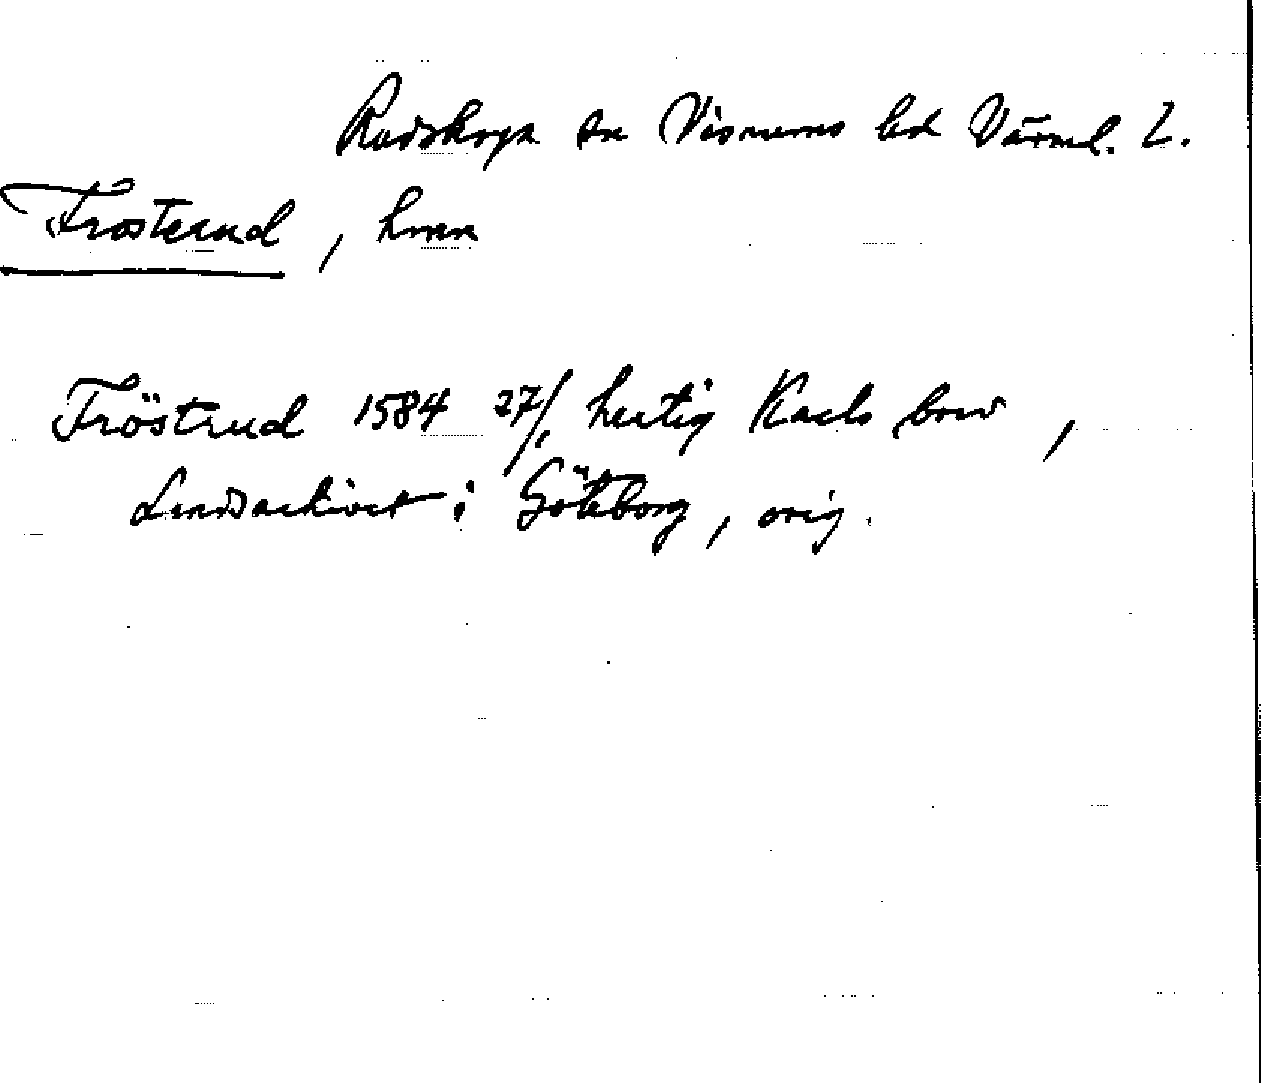 Rudskoga sn Visnums hd Värml. L.
Frosterud, hmn
Fröstrud 1584 27/1 hertig Karls brev,
Landsarkivet i Göteborg, orig.